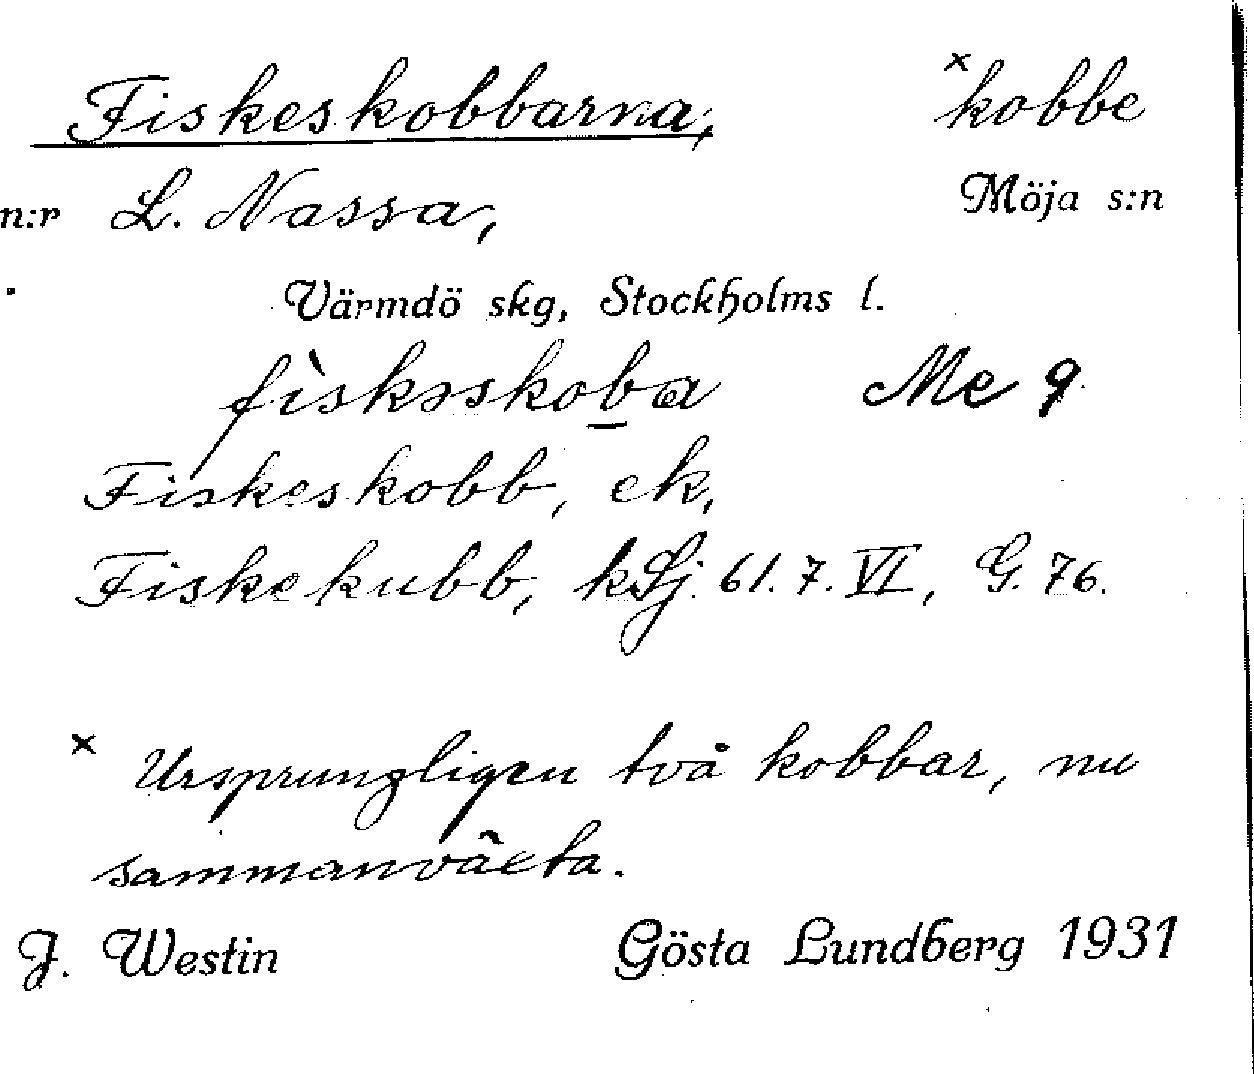 Fiskeskobbarna, ×kobbe
n:r L. Nassa, Möja s:n
Värmdö skg, Stockholms l.
Me 9
Fiskeskobb, ek,
Fiskekubb, kSj. 61.7.VI, G. 76.
× Ursprungligen två kobbar, nu
sammanväcta.
J. Westin Gösta Lundberg 1931